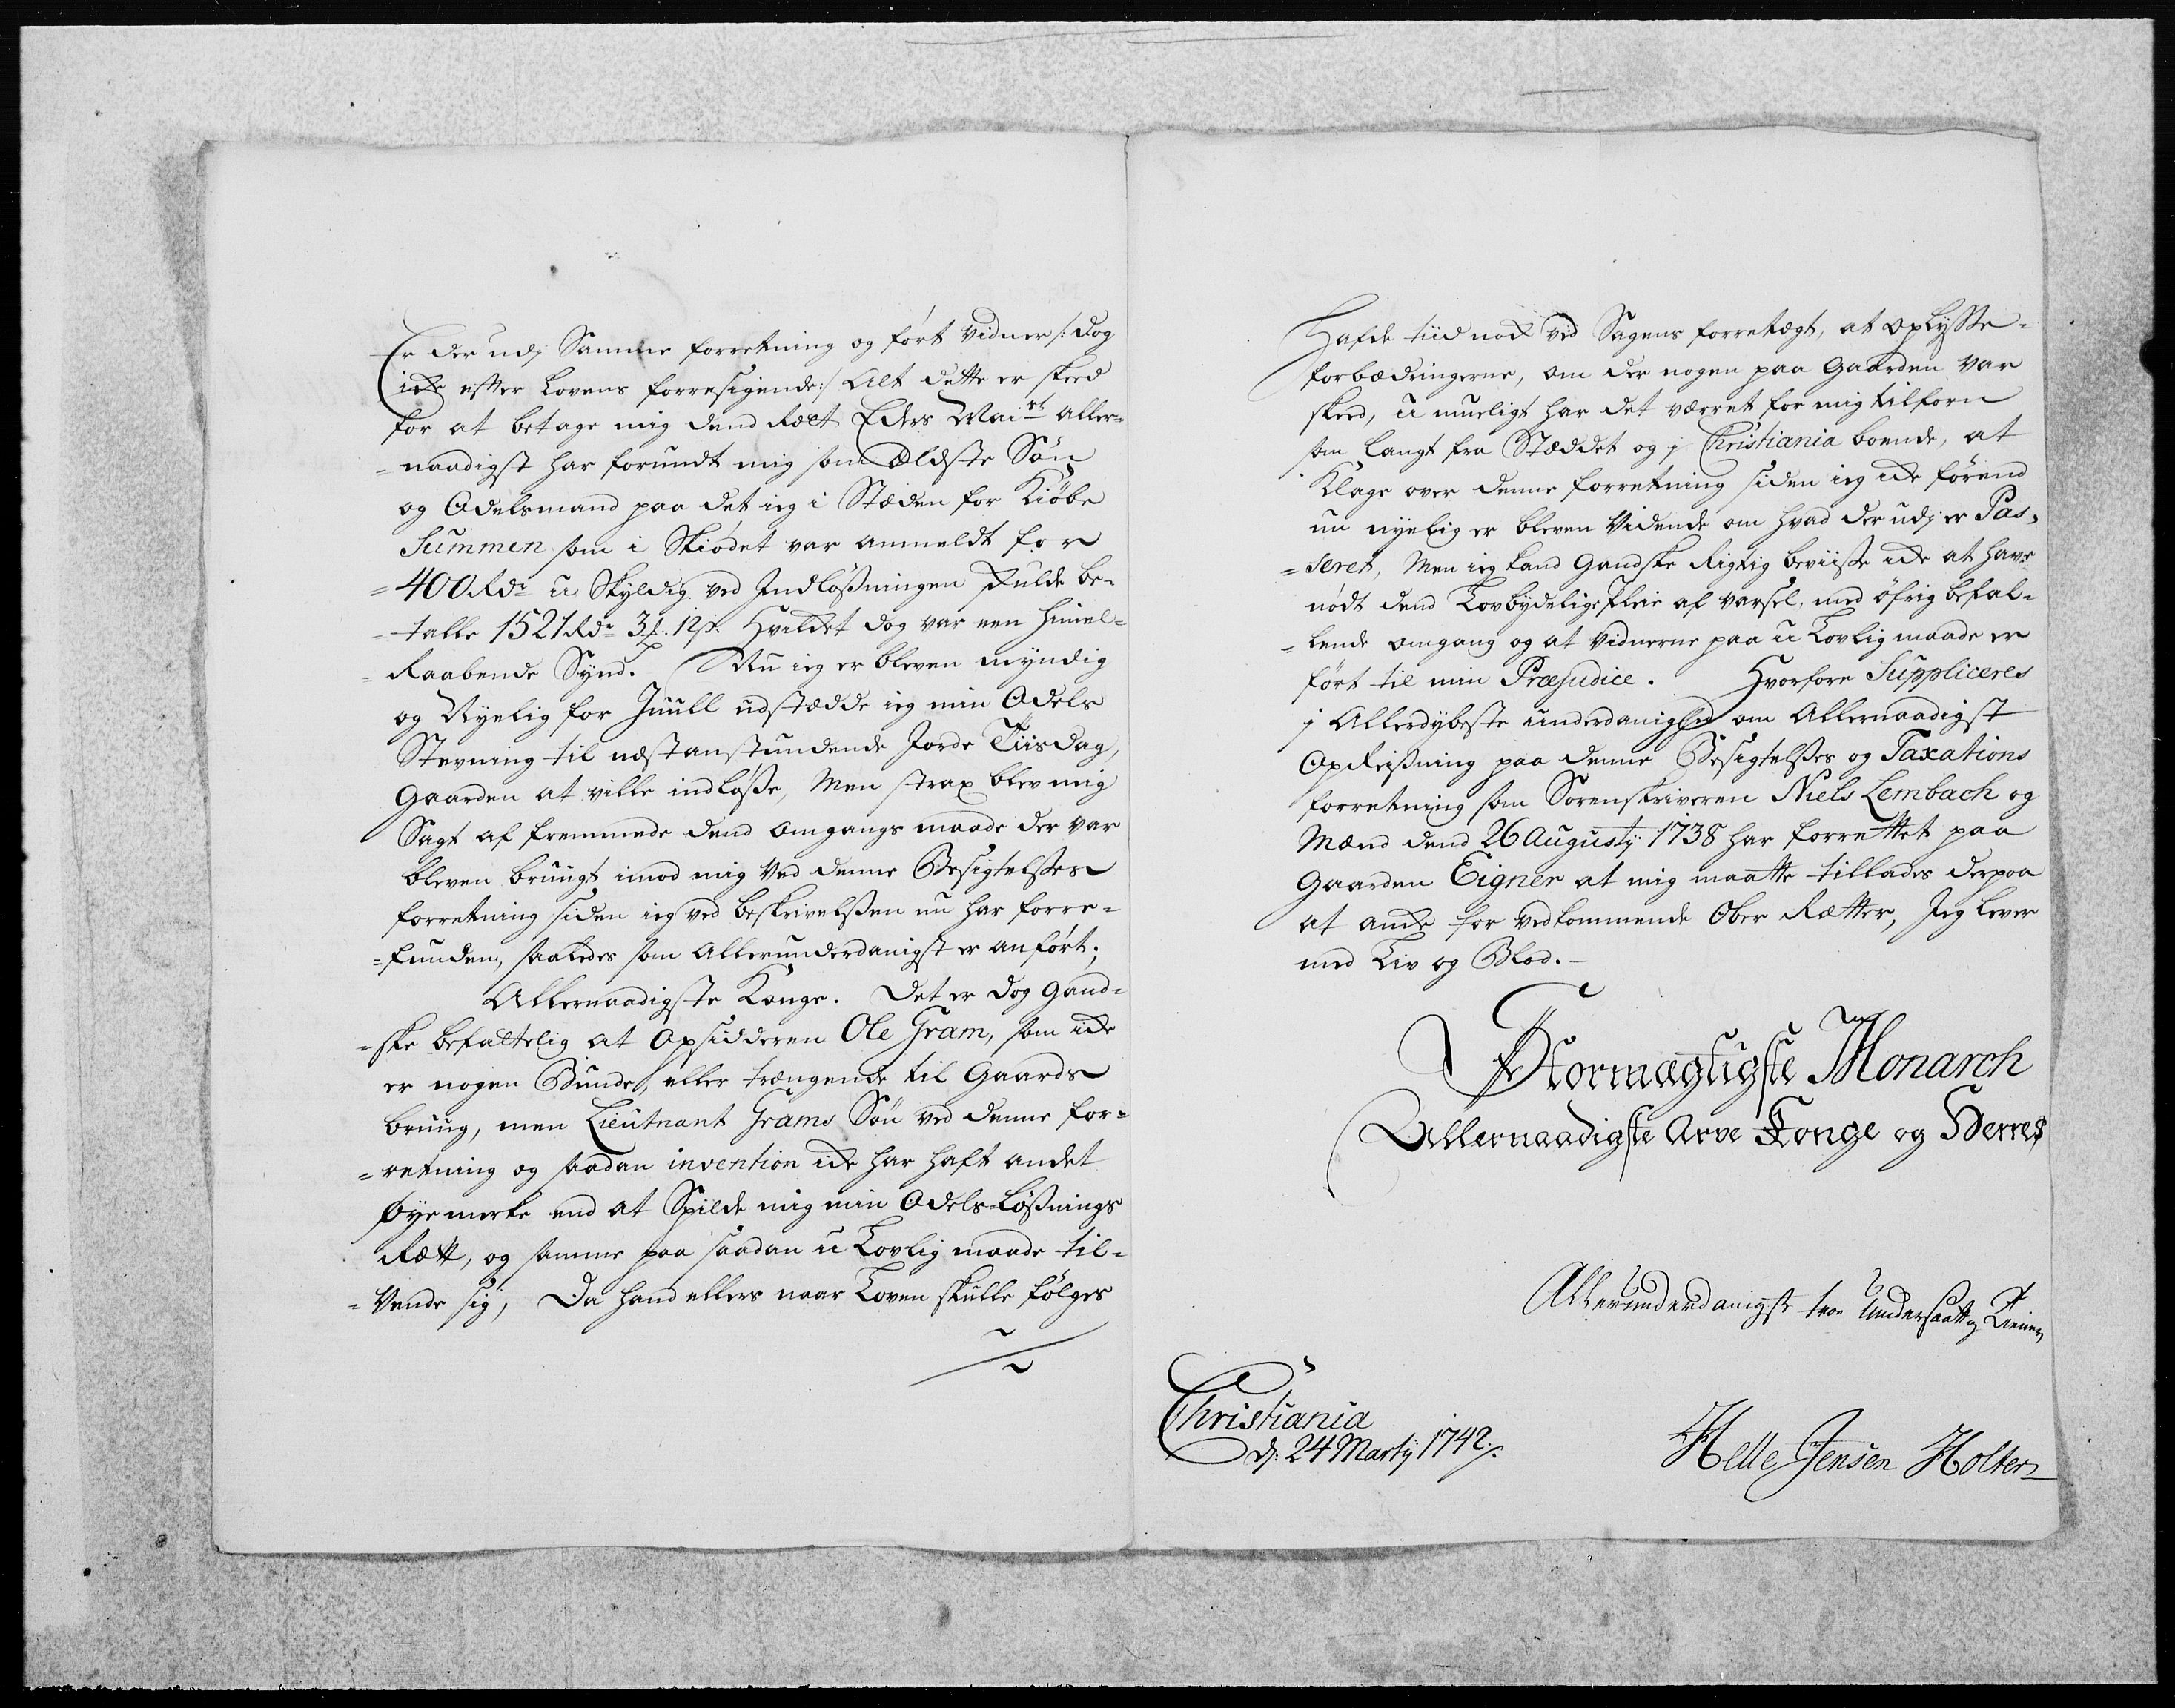 Er der udj Samme forretning og fört Vidner /: dog
icke efter Lovens forresigende :/ Alt dette er skeed
for at betage mig dend Rætt Eders Mai:st aller-
-naadigst har forundt mig som Ældste Sön
og Odelsmand paa det ieg i Stæden for Kiöbe
Summen som i Skiödet var anmeldt for
=400 Rdr u Skyldig ved Indlößningen Fulde be-
-talle 1521 Rdr 3 12 s. Hvilcket dog var een himel-
=Raabende Synd. Nu ieg er bleven myndig
og Nyelig for Juull udstædde ieg min Odels
Stevning til nestanstundende Jorde Tiisdag,
Gaarden at ville indlöße, Men strax blev mig
Sagt af fremmede dend omgangs maade der var
bleven bruugt imod mig ved denne Besigtelses
forretning siden ieg ved beskrivelsen nu har forre-
=funden, saaledes som Allerunderdanigst er anfört;
Allernaadigste Konge. Det er dog gand-
=ske befattelig at Opsidderen Ole Gram, som icke
er nogen Bunde, eller trængende til Gaards
bruug, men Lieutnant Grams Sön ved denne for-
=retning og saadan invention icke har haft andet
Øyemerke end at Spilde mig min Odels-Lößnings
Rætt, og samme paa saadan u Lovlig maade til-
=Vende sig, Da hand ellers naar Loven skulle fölges
Hafde tiid nock ved Sagens forretægt, at oplyße-
forbædringerne, om der nogen paa Gaarden var
skeed, u mueligt har det værret for mig tilforn
som langt fra Stæddet og j Christiania boende, at
Klage over denne forretning siden ieg icke förend
nu nyelig er bleven Vidende om hvad der udj er Pas-
=seret, Men ieg kand Gandske Rigtig beviiße icke at have
nödt dend Lovbydelige Pleie af varsel, med öfrig befal-
=lende omgang og at vidnerne paa u Lovlig maade er
fört til min Præjudice. Hvorfore Suppliceres
j Allerdybeste underdanighed om Allernaadigst
Opreisning paa denne Besigtelses og Taxations
forretning som Sorenskriveren Niels Lembach og
Mænd dend 26 Augustij 1738 har forrettet paa
Gaarden Eigner at mig maatte tillades derpaa
at ancke for vedkommende Ober Rætter, Jeg lever
med Liv og Blod.-
Stormægtigste Monarch
Allernaadigste Arve Konge og Herres
Allerunderdanigste troe Undersaatt og Tiener
Christiania
d: 24 Martij 1742.
Helle Jensen Holter